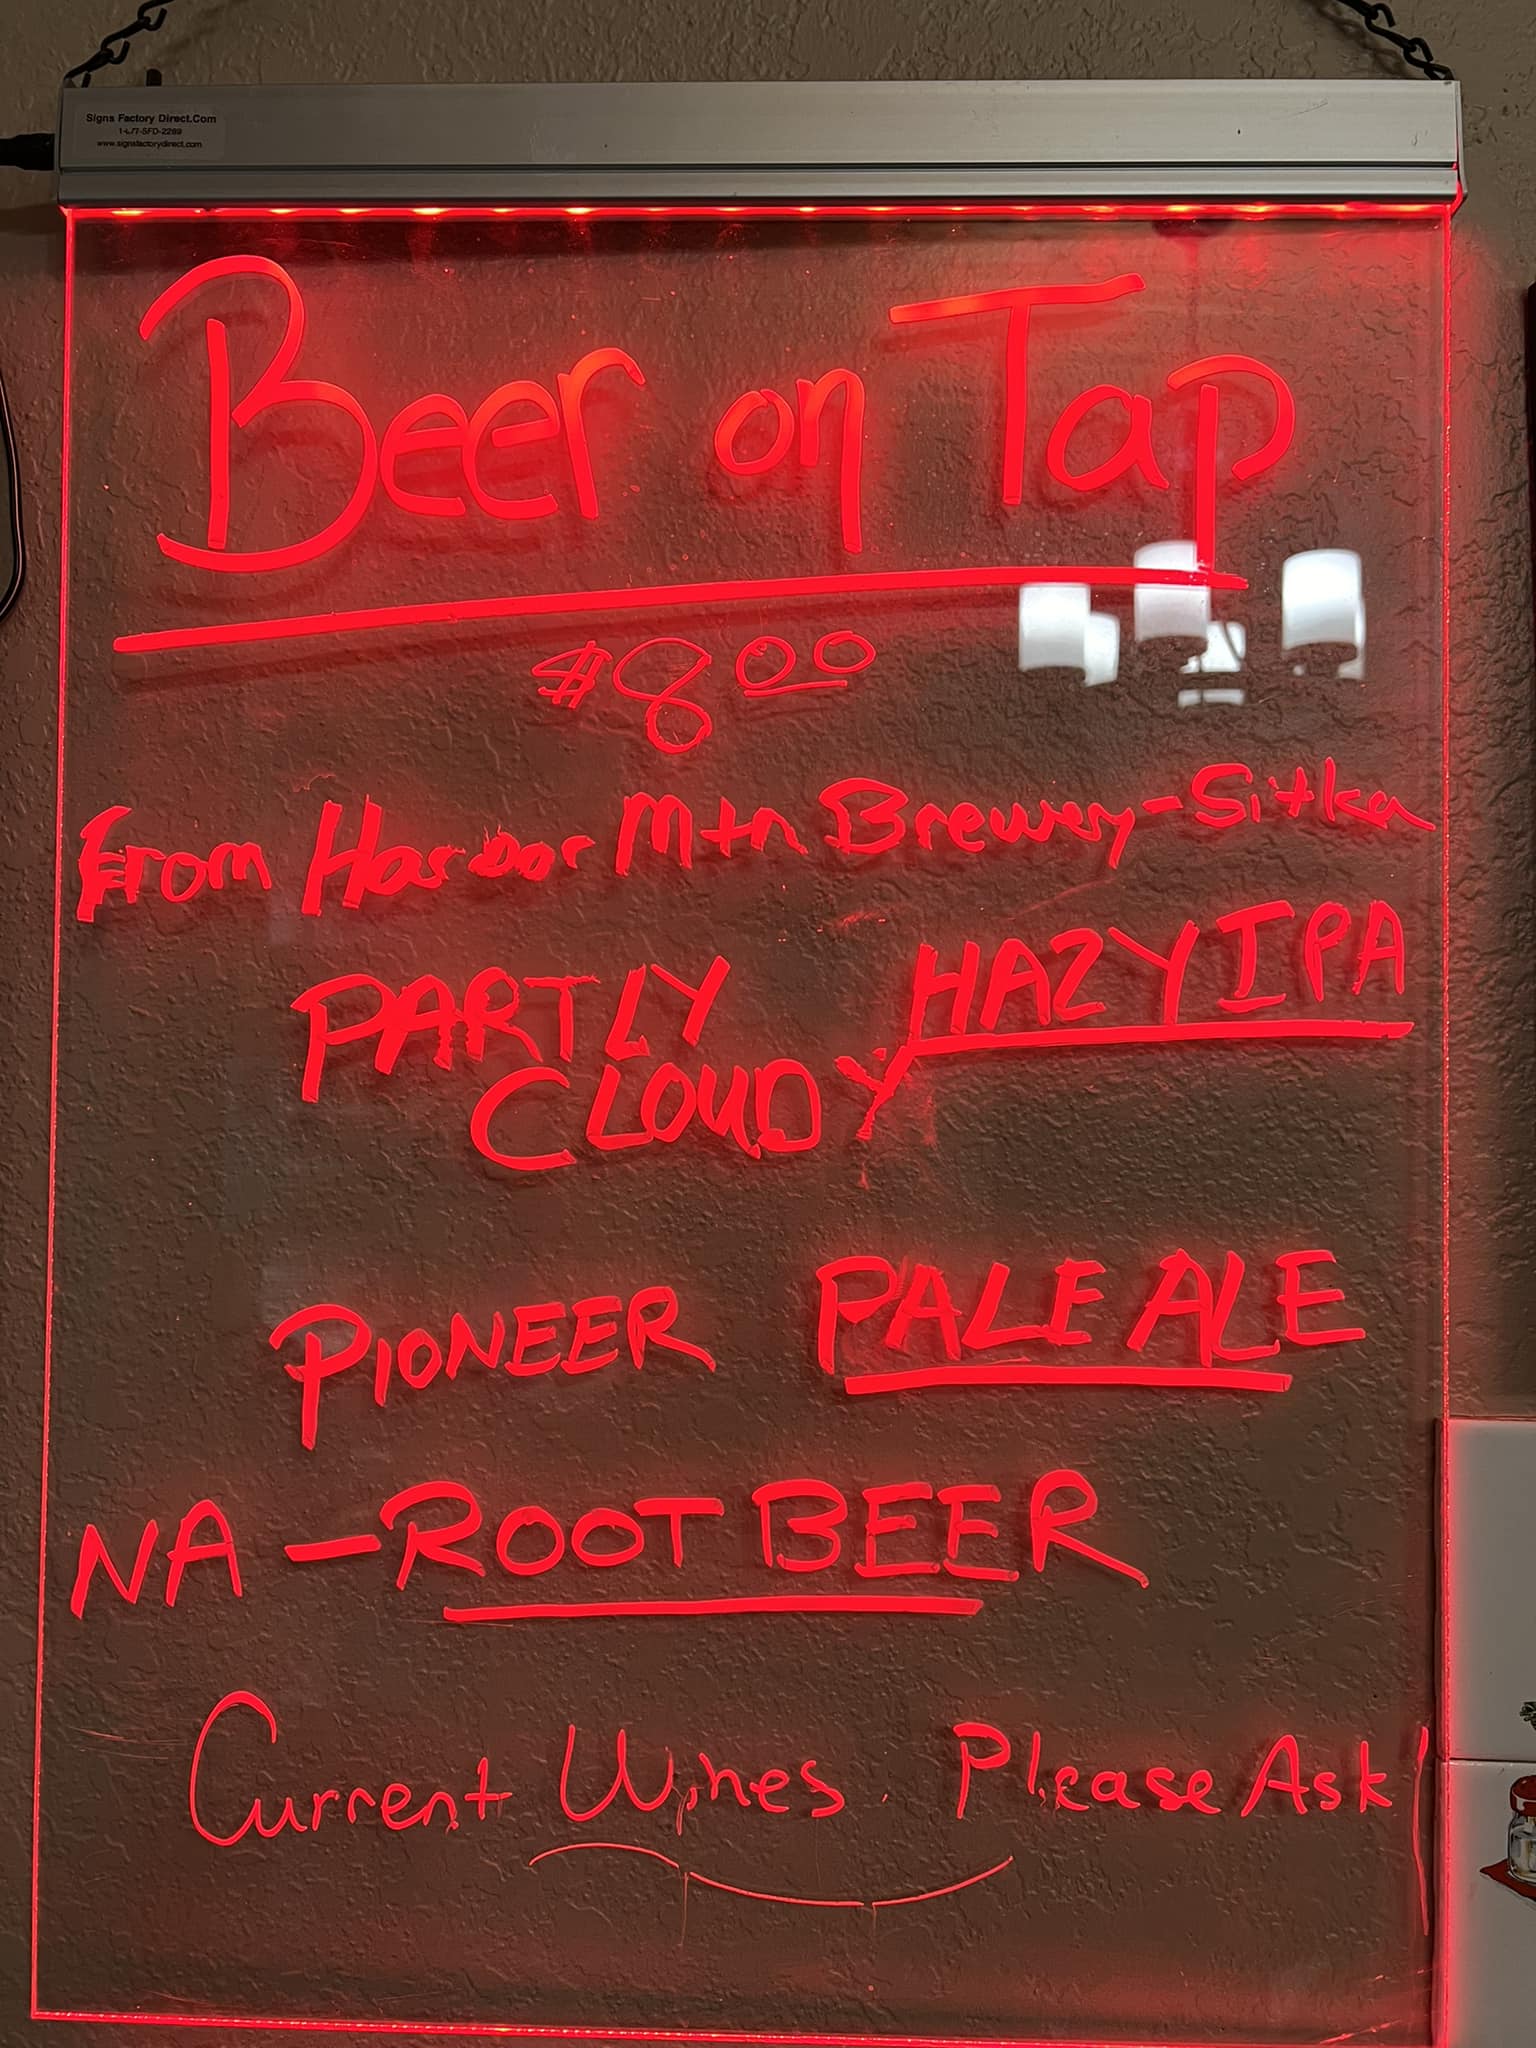 Signs Factory Direct.Com
1-877-SFD-2289
www.signsfactorydirect.com
Beer on Tap
$8.00
From Harbor Mtn Brewery-Sitka
PARTLY HAZY IPA
CLOUDY
PIONEER PALE ALE
NA - ROOT BEER
Current Wines. Please Ask!